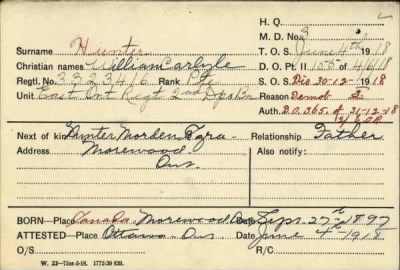 H. Q.
M. D. No. 3
Surname Hunter T. O. S. June 4th 1918
Christian names William Carlyle D. O. Pt. II 155 of 4/6/18
Regtl. No. 3323416 Rank Pte S. O. S. Dis 30-12-1918
Unit East Ont Regt 2nd Dpo Bn Reason Demob
Auth. D.O. 365 of 31-12-18
Next of kin Hunter Morden Ezra Relationship Father
Address Morewood Also notify:
Ont.
BORN—Place Canada Morewood Ont Date Sept. 27th 1897
ATTESTED—Place Ottawa Ont Date June 4th 1918
O/S R/C
W. 22—75M-5-18. 1772-39 839.